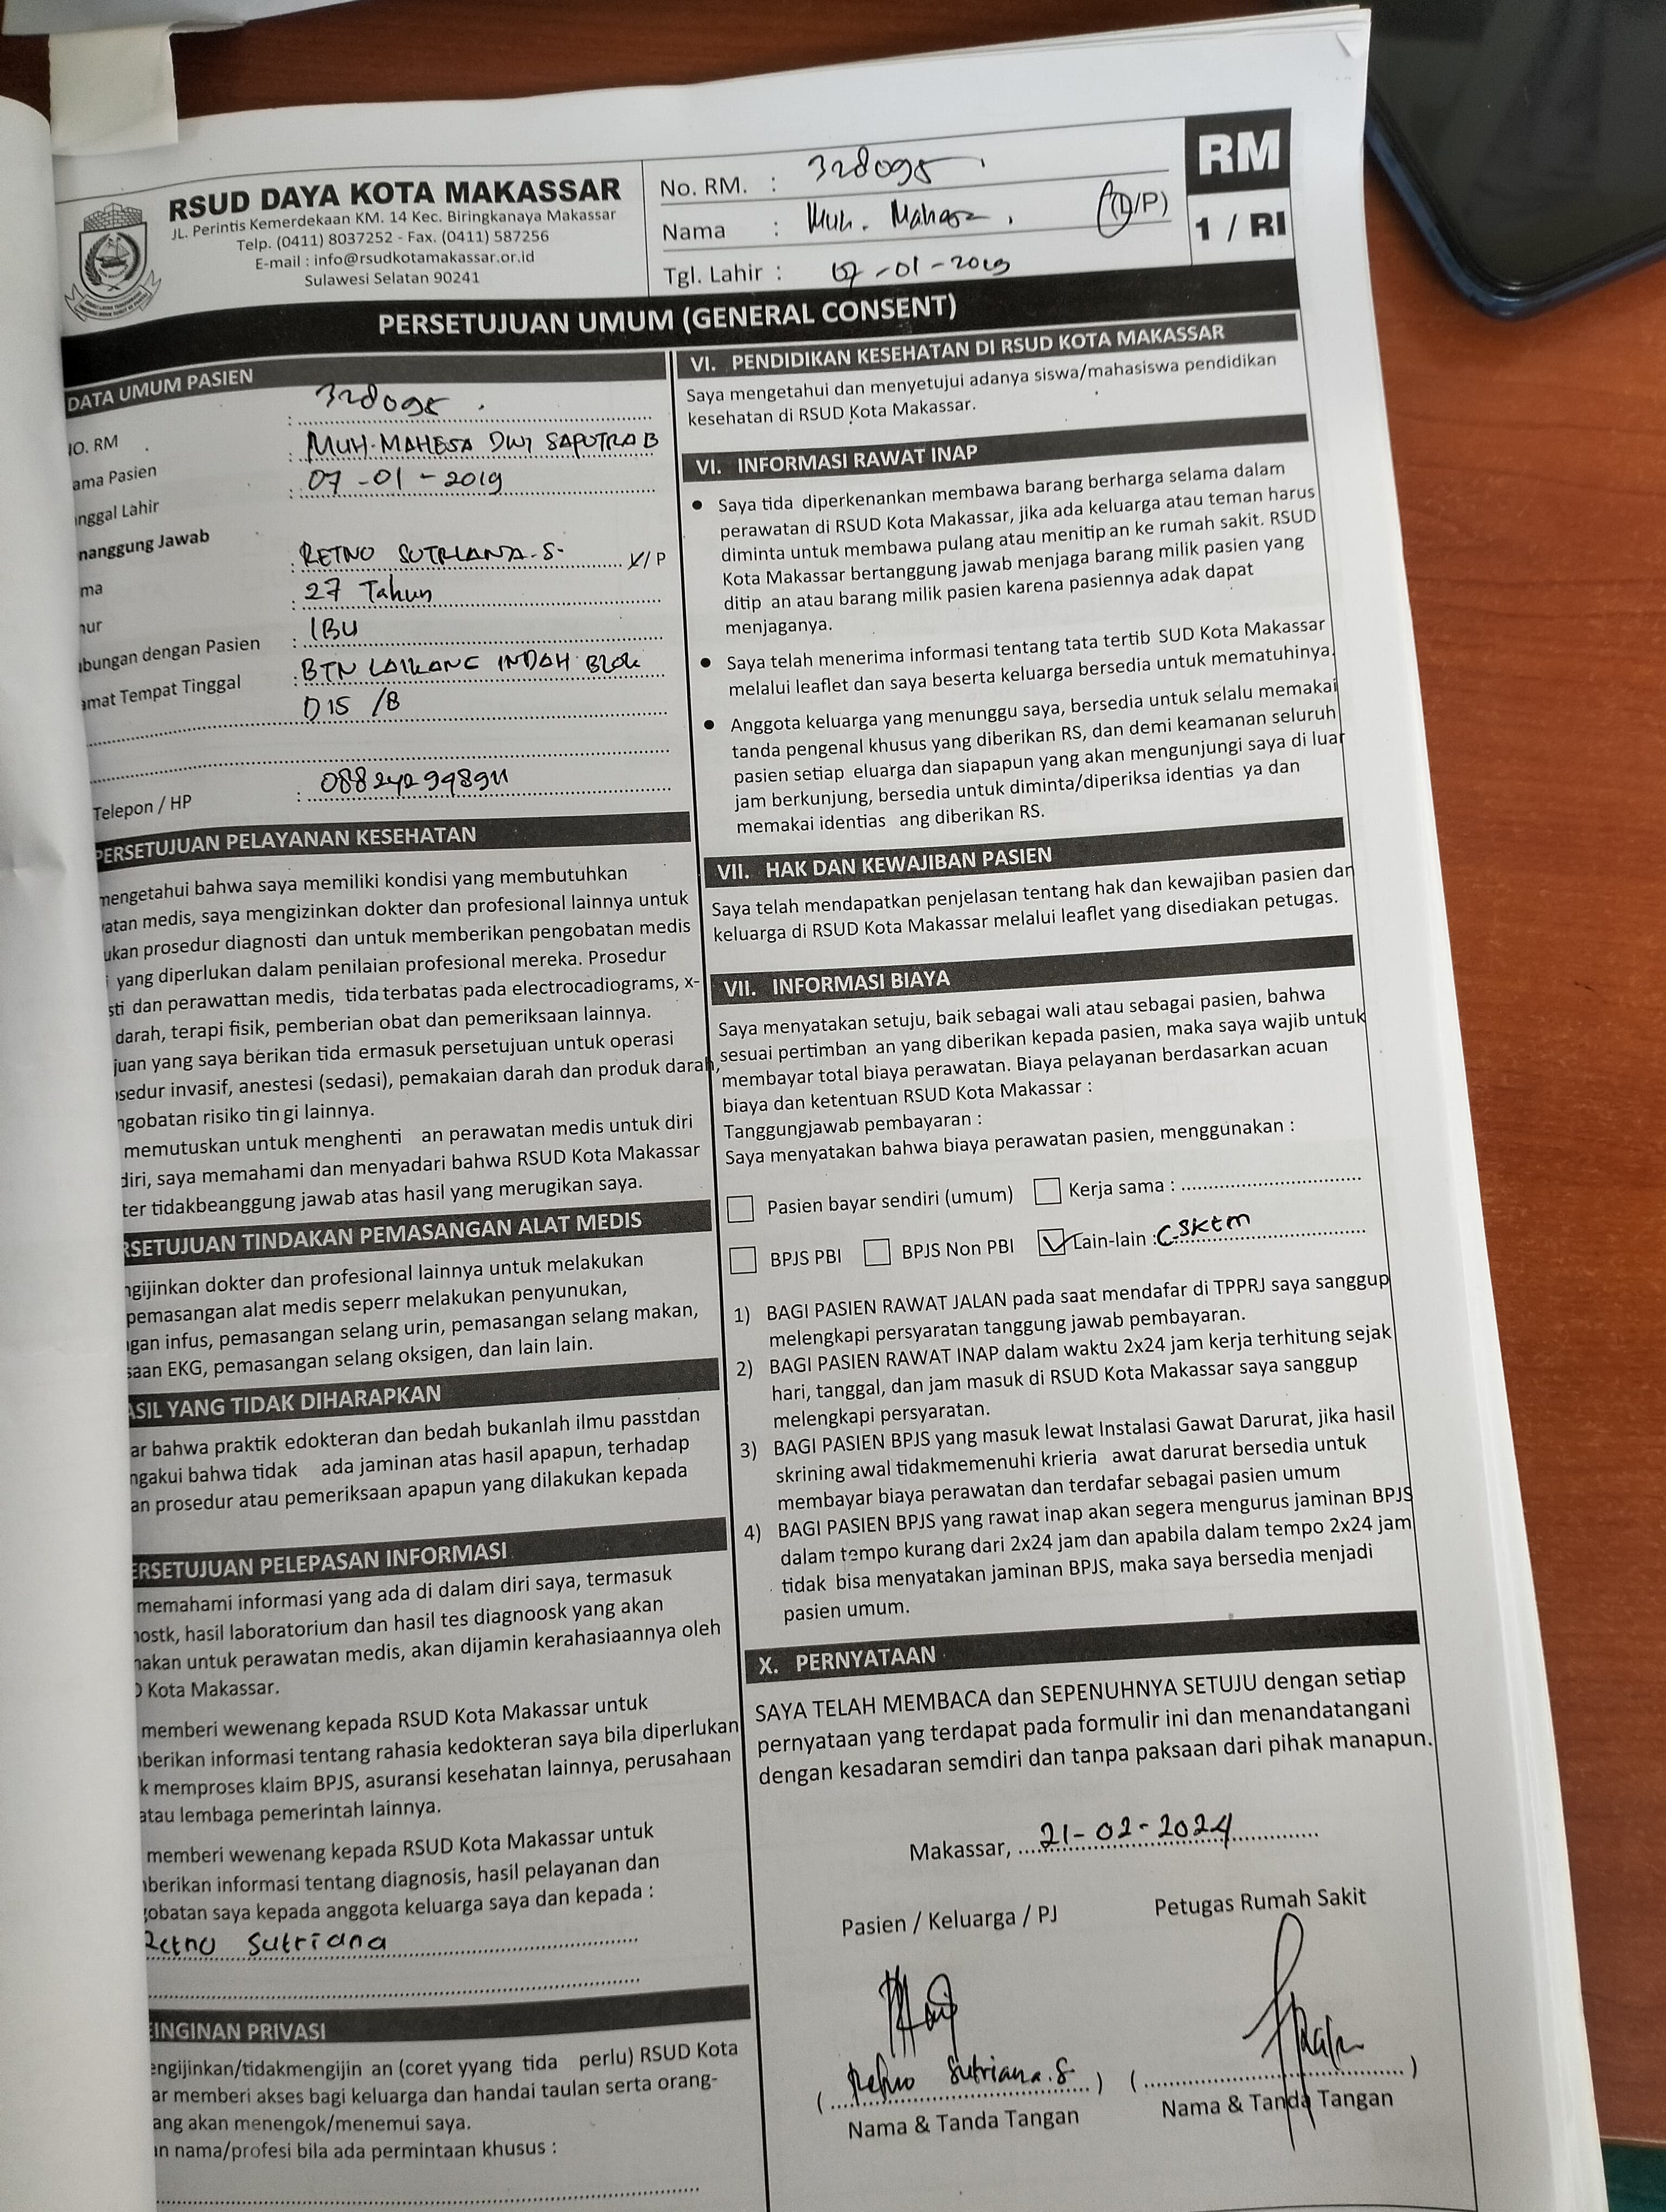 RSUD DAYA KOTA MAKASSAR
JL. Perintis Kemerdekaan KM. 14 Kec. Biringkanaya Makassar
Telp. (0411) 8037252 - Fax. (0411) 587256
E-mail : info@rsudkotamakassar.or.id
Sulawesi Selatan 90241
No. RM. : 328095
Nama : Muh. Mahesa (L/P)
Tgl. Lahir : 07-01-2019
RM
1 / RI
PERSETUJUAN UMUM (GENERAL CONSENT)
DATA UMUM PASIEN
NO. RM : 328095
ama Pasien : MUH. MAHESA DWI SAPUTRA B
nggal Lahir : 07-01-2019
nanggung Jawab
ma : RETNO SUTRIANA. S. L/P
nur : 27 Tahun
ubungan dengan Pasien : IBU
amat Tempat Tinggal : BTN LAIKANG INDAH Blok
D15 /8
Telepon / HP :
PERSETUJUAN PELAYANAN KESEHATAN
mengetahui bahwa saya memiliki kondisi yang membutuhkan
atan medis, saya mengizinkan dokter dan profesional lainnya untuk
ukan prosedur diagnosti dan untuk memberikan pengobatan medis
i yang diperlukan dalam penilaian profesional mereka. Prosedur
sti dan perawattan medis, tida terbatas pada electrocadiograms, x-
darah, terapi fisik, pemberian obat dan pemeriksaan lainnya.
juan yang saya berikan tida ermasuk persetujuan untuk operasi
sedur invasif, anestesi (sedasi), pemakaian darah dan produk darah,
ngobatan risiko tin gi lainnya.
memutuskan untuk menghenti an perawatan medis untuk diri
diri, saya memahami dan menyadari bahwa RSUD Kota Makassar
ter tidakbeanggung jawab atas hasil yang merugikan saya.
RSETUJUAN TINDAKAN PEMASANGAN ALAT MEDIS
ngijinkan dokter dan profesional lainnya untuk melakukan
pemasangan alat medis seperr melakukan penyunukan,
gan infus, pemasangan selang urin, pemasangan selang makan,
saan EKG, pemasangan selang oksigen, dan lain lain.
ASIL YANG TIDAK DIHARAPKAN
ar bahwa praktik edokteran dan bedah bukanlah ilmu passtdan
ngakui bahwa tidak ada jaminan atas hasil apapun, terhadap
an prosedur atau pemeriksaan apapun yang dilakukan kepada
ERSETUJUAN PELEPASAN INFORMASI
memahami informasi yang ada di dalam diri saya, termasuk
nostk, hasil laboratorium dan hasil tes diagnoosk yang akan
nakan untuk perawatan medis, akan dijamin kerahasiaannya oleh
D Kota Makassar.
memberi wewenang kepada RSUD Kota Makassar untuk
nberikan informasi tentang rahasia kedokteran saya bila diperlukan
k memproses klaim BPJS, asuransi kesehatan lainnya, perusahaan
atau lembaga pemerintah lainnya.
memberi wewenang kepada RSUD Kota Makassar untuk
nberikan informasi tentang diagnosis, hasil pelayanan dan
gobatan saya kepada anggota keluarga saya dan kepada :
Retno Sutriana
EINGINAN PRIVASI
engijinkan/tidakmengijin an (coret yyang tida perlu) RSUD Kota
ar memberi akses bagi keluarga dan handai taulan serta orang-
ang akan menengok/menemui saya.
an nama/profesi bila ada permintaan khusus :
VI. PENDIDIKAN KESEHATAN DI RSUD KOTA MAKASSAR
Saya mengetahui dan menyetujui adanya siswa/mahasiswa pendidikan
kesehatan di RSUD Kota Makassar.
VI. INFORMASI RAWAT INAP
• Saya tida diperkenankan membawa barang berharga selama dalam
perawatan di RSUD Kota Makassar, jika ada keluarga atau teman harus
diminta untuk membawa pulang atau menitip an ke rumah sakit. RSUD
Kota Makassar bertanggung jawab menjaga barang milik pasien yang
ditip an atau barang milik pasien karena pasiennya adak dapat
menjaganya.
• Saya telah menerima informasi tentang tata tertib SUD Kota Makassar
melalui leaflet dan saya beserta keluarga bersedia untuk mematuhinya.
• Anggota keluarga yang menunggu saya, bersedia untuk selalu memakai
tanda pengenal khusus yang diberikan RS, dan demi keamanan seluruh
pasien setiap eluarga dan siapapun yang akan mengunjungi saya di luar
jam berkunjung, bersedia untuk diminta/diperiksa identias ya dan
memakai identias ang diberikan RS.
VII. HAK DAN KEWAJIBAN PASIEN
Saya telah mendapatkan penjelasan tentang hak dan kewajiban pasien dan
keluarga di RSUD Kota Makassar melalui leaflet yang disediakan petugas.
VII. INFORMASI BIAYA
Saya menyatakan setuju, baik sebagai wali atau sebagai pasien, bahwa
sesuai pertimban an yang diberikan kepada pasien, maka saya wajib untuk
membayar total biaya perawatan. Biaya pelayanan berdasarkan acuan
biaya dan ketentuan RSUD Kota Makassar :
Tanggungjawab pembayaran :
Saya menyatakan bahwa biaya perawatan pasien, menggunakan :
Pasien bayar sendiri (umum) Kerja sama :
BPJS PBI BPJS Non PBI Lain-lain : C.SKTM
1) BAGI PASIEN RAWAT JALAN pada saat mendafar di TPPRJ saya sanggup
melengkapi persyaratan tanggung jawab pembayaran.
2) BAGI PASIEN RAWAT INAP dalam waktu 2x24 jam kerja terhitung sejak
hari, tanggal, dan jam masuk di RSUD Kota Makassar saya sanggup
melengkapi persyaratan.
3) BAGI PASIEN BPJS yang masuk lewat Instalasi Gawat Darurat, jika hasil
skrining awal tidakmemenuhi krieria awat darurat bersedia untuk
membayar biaya perawatan dan terdafar sebagai pasien umum
4) BAGI PASIEN BPJS yang rawat inap akan segera mengurus jaminan BPJS
dalam tempo kurang dari 2x24 jam dan apabila dalam tempo 2x24 jam
tidak bisa menyatakan jaminan BPJS, maka saya bersedia menjadi
pasien umum.
X. PERNYATAAN
SAYA TELAH MEMBACA dan SEPENUHNYA SETUJU dengan setiap
pernyataan yang terdapat pada formulir ini dan menandatangani
dengan kesadaran semdiri dan tanpa paksaan dari pihak manapun.
Makassar, 21-02-2024
Pasien / Keluarga / PJ Petugas Rumah Sakit
( Retno Sutriana. S ) ( )
Nama & Tanda Tangan Nama & Tanda Tangan